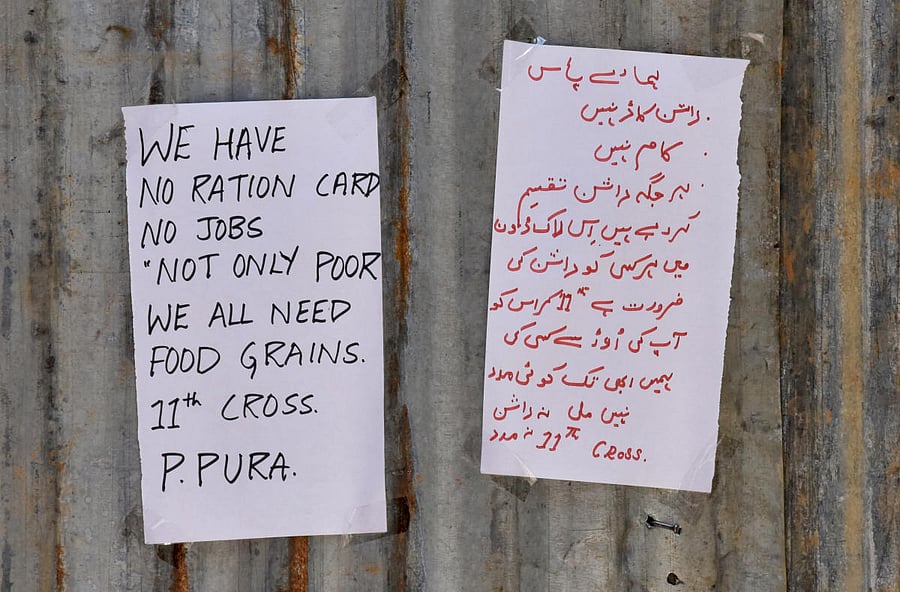 WE HAVE
NO RATION CARD
NO JOBS
"NOT ONLY POOR
WE ALL NEED
FOOD GRAINS.
11th CROSS.
P.PURA.
ہمارے پاس
راشن کارڈ نہیں
کام نہیں
ہر جگہ راشن تقیم
کررہے ہیں اِس لاک ڈون
میں ہر کسی کو راشن کی
ضرورت ہے 11th کراس کو
آپ کی اور سے کسی کی
ہمیں ابھی تک کوئی مدد
نہیں ملی نہ راشن
نہ مدد 11th CROSS.